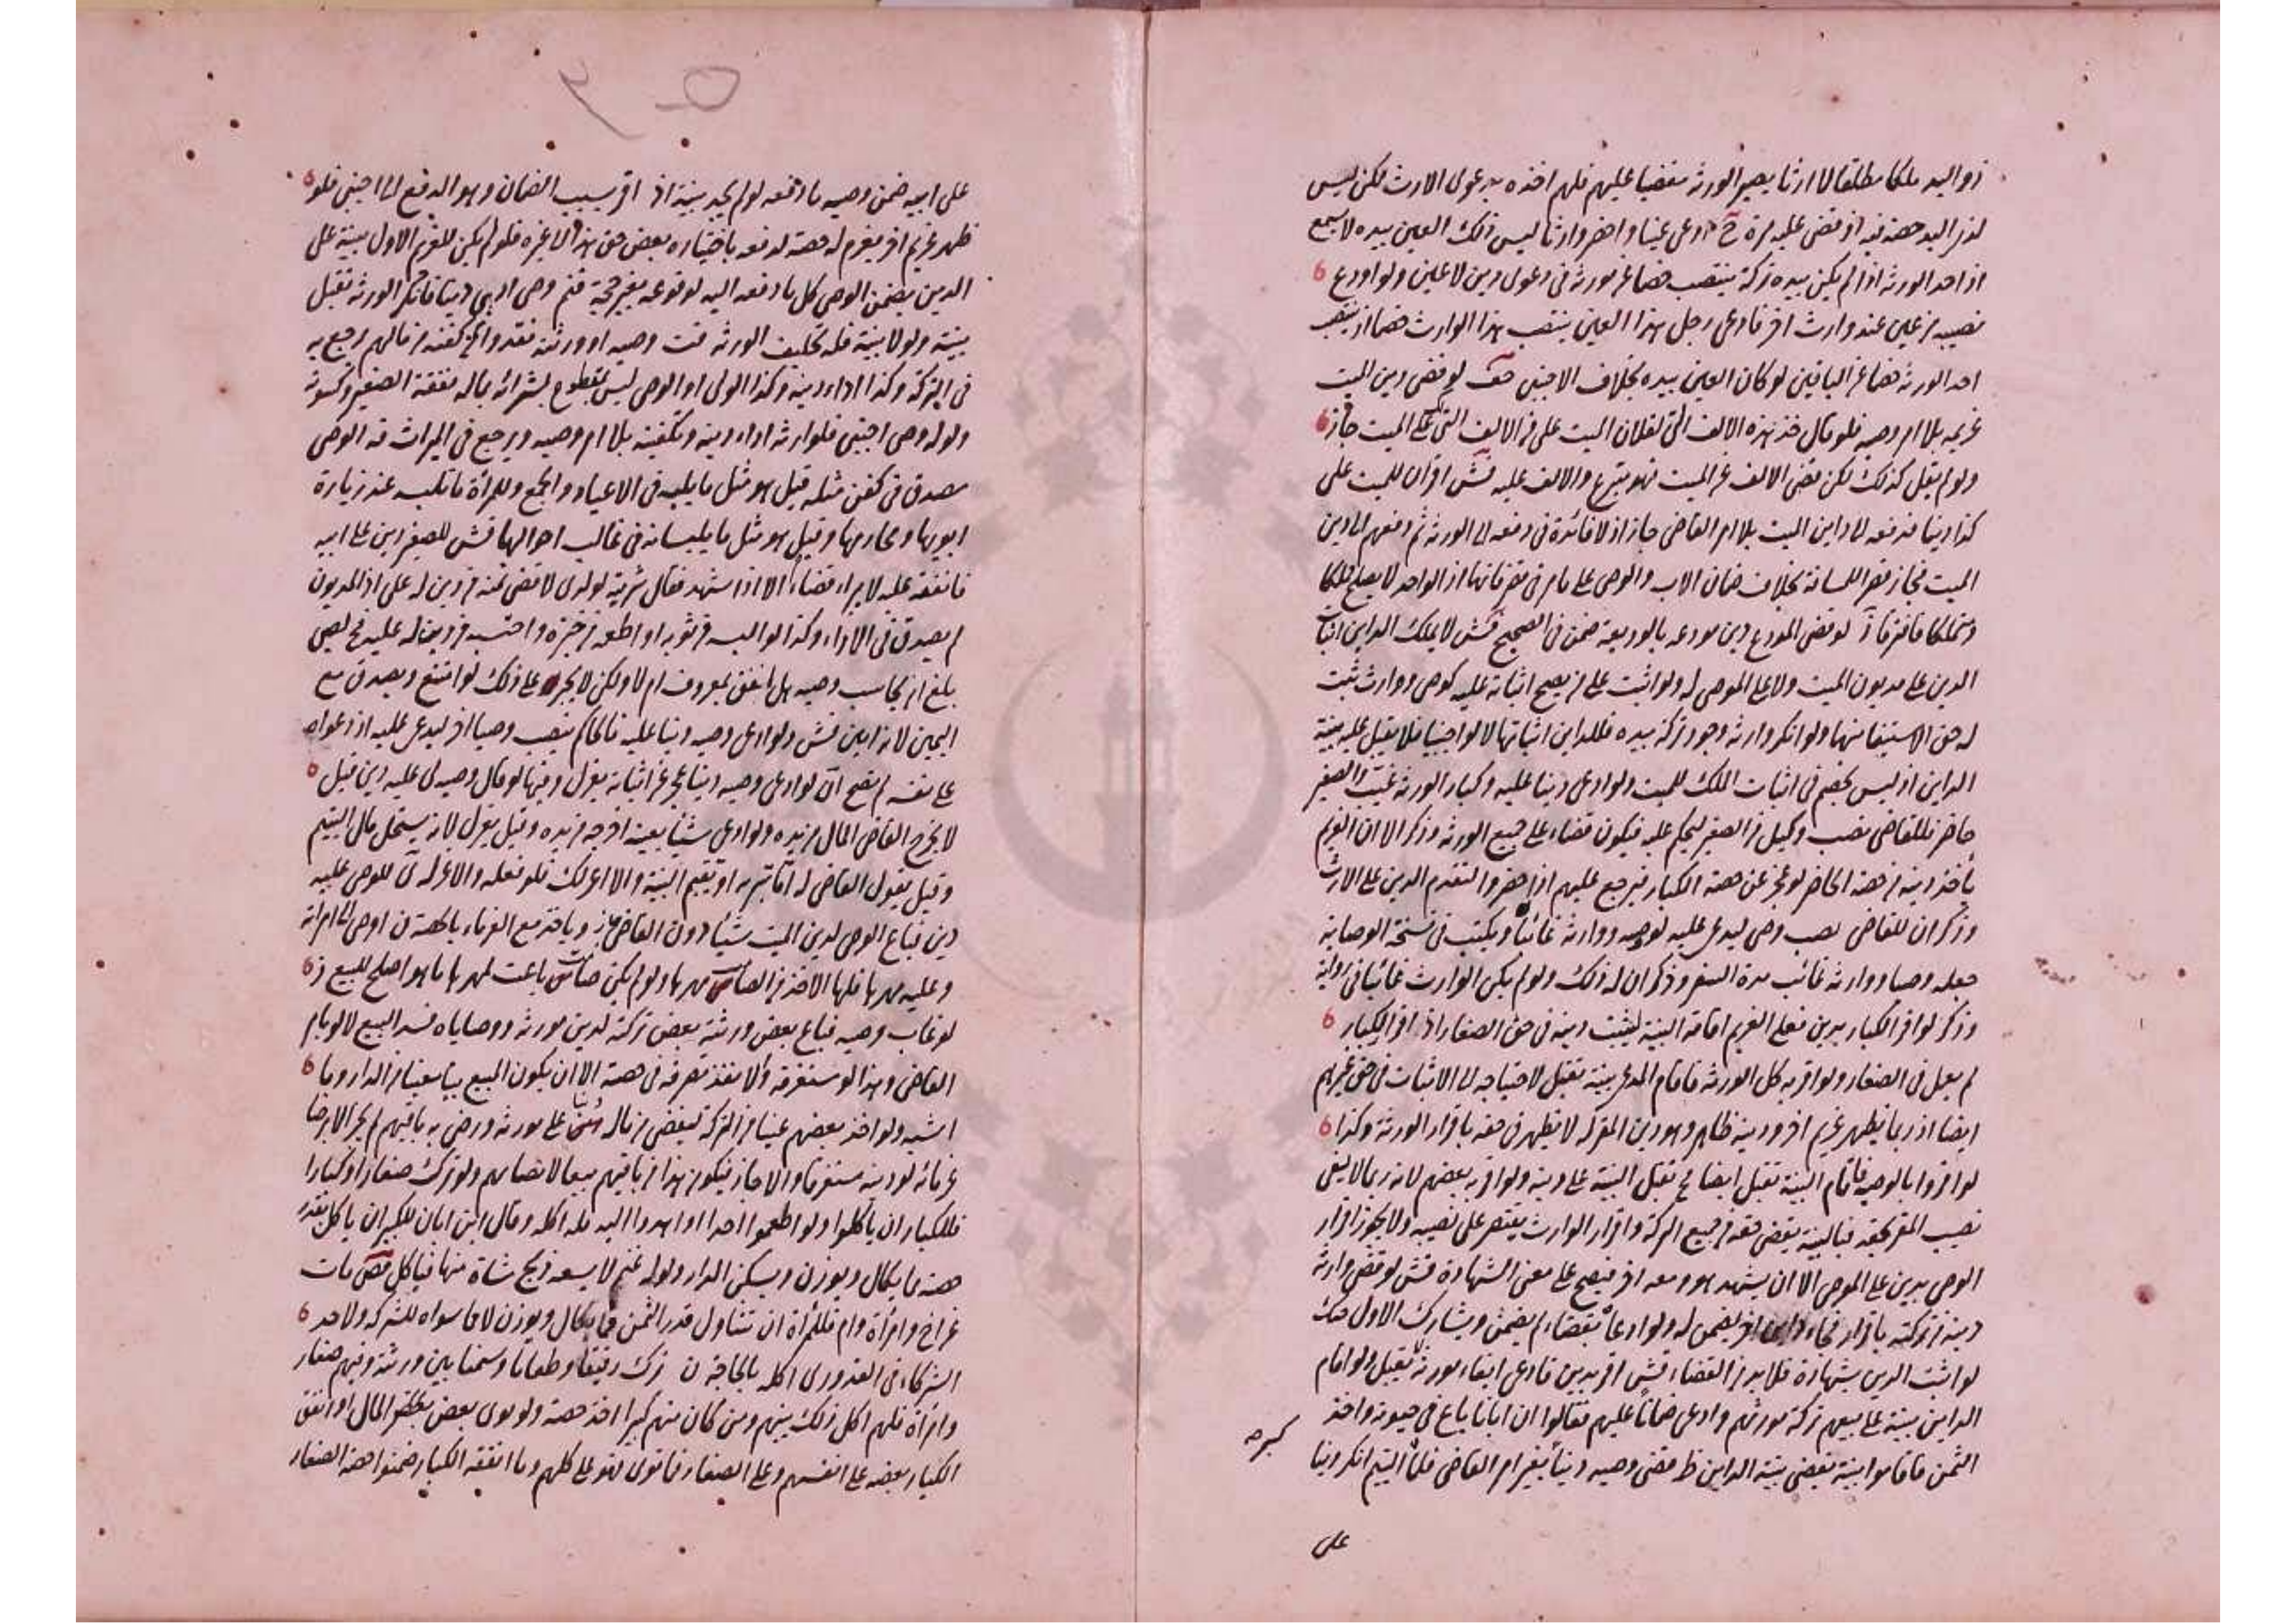 ذو اليد ملكا مطلقا لا ارثا يصير الورثة مقضيا عليهم فلهم اخذه بدعوى الارث لكن ليس
لذى اليد حصة فيه اذ قضى عليه مرة ادعى عينا واحضر وارثا ليس ذلك العين بيده لا يسمع
اذ احد الورثة اذا لم يكن بيده تركة ينتصب خصما عن مورثه فى دعوى دين لا عين ولو اودع
نصيبه من عين عند وارث اخر فادعى رجل هذا العين ينتصب هذا الوارث خصما اذ ينتصب
احد الورثة خصما عن الباقين لو كان العين بيده بخلاف الاجنبى لو قضى دين الميت
غريمه بلا امر وصيه فلو قال خذ هذه الالف التى لفلان الميت على من الالف التى لك على الميت جاز
ولو لم يقل كذلك لكن قضى الالف عن الميت فهو متبرع والالف عليه فش اقر ان للميت على
كذا دينا فدفعه الى داين الميت بلا امر القاضى جاز اذ لا فائدة فى دفعه الى الورثة ثم دفعهم الى داين
الميت فجاز قصر اللمسافة بخلاف ضمان الاب والوصى على ما مر فى متفرقاتها اذ الواحد لا يصلح مملكا
ومتملكا فافترقا لو قضى المودع دين مودعه بالوديعة ضمن فى الصحيح فش لا يملك الداين اثبات
الدين على مديون الميت ولا على الموصى له ولو اثبت على من يصح اثباته عليه كوصى ووارث ثبت
له حق الاستيفا منها ولو انكر وارثه وجود تركة بيده فللداين اثباتها لا لو اجنبيا فلا يقبل عليه بينة
الداين اذ ليس بخصم فى اثبات الملك للميت ولو ادعى دينا عليه وكبار الورثة غيب والصغير
حاضر فللقاضى نصب وكيل من الصغير ليحكم عليه فيكون قضاء على جميع الورثة وذكر الا ان الغريم
يأخذ دينه من حصة الحاضر لو عجز عن حصة الكبار فيرجع عليهم اذا حضر والتقدم الدين على الارث
وذكر ان للقاضى نصب وصى ليدعى عليه لو وصيه ووارثه غائبا ويكتب فى نسخة الوصاية
جعله وصيا ووارثه غائب مدة السفر وذكر ان له ذلك ولو لم يكن الوارث غائبا فى رواية
وذكر لو اقر الكبار بدين فعلى الغريم اقامة البينة ليثبت دينه فى حق الصغار اذ اقرار الكبار
لم يعمل فى الصغار ولو اقر به كل الورثة فاقام المدعى بينة تقبل لاحتياجه الى الاثبات فى حق غيرهم
ايضا اذ ربما يظهر غريم اخر ودينه ظاهر وهو دين المقر له لا يظهر فى حقه باقرار الورثة وكذا
لو اقروا بالوصية فاقام البينة تقبل ايضا تقبل البينة على دينه ولو اقر به بعضهم لانه ربما لا يفى
نصيب المقر بحقه فبالبينة يقضى حقه من جميع التركة واقرار الوارث يقتصر على نصيبه ولا يجوز اقرار
الوصى بدين على الموصى الا ان يشهد هو ومعه اخر فيصح على معنى الشهادة فش لو قضى وارثه
دينه من تركته باقرار فجاء داين اخر يضمن له ولو ادعاه بقضاء لم يضمن ويشارك الاول
لو اثبت الدين بشهادة فلا بد من القضاء فش اقر بدين فادعى ايفاء مورثه يقبل ولو اقام
الداين بينة على بيعهم تركة مورثهم وادعى ضمانا عليهم فقالوا ان ابانا باع فى حيوته واخذ
الثمن فاقاموا بينة يقضى بينة الداين ظ قضى وصيه دينا بغير امر القاضى فلما اليتيم انكر دينا
على
على ابيه ضمن وصيه ما دفعه لو لم يجد بينة اذ اقر بسبب الضمان وهو الدفع الى اجنبى فلو
ظهر غريم اخر يغرم له حصته لدفعه باختياره بعض حق هذا الى غيره فلو لم يكن للغريم الاول بينة على
الدين يضمن الوصى كل ما دفعه اليه لوقوعه بغير حجة وصى ادى دينا فانكر الورثة تقبل
بينته ولو لا بينة فله تحليف الورثة وصيه او ورثته نقدوا ثمن كفنه من مالهم رجع به
فى التركة وكذا اداء دينه وكذا الولى او الوصى ليس بمتطوع بشرائه بماله نفقة الصغير وكسوته
ولو له وصى اجنبى فلوارثه اداء دينه وتكفينه بلا امر وصيه ويرجع فى الميراث الوصى
مصدق فى كفن مثله قيل هو مثل ما يلبسه فى الاعياد والجمع وللمرأة ما تلبسه عند زيارة
ابويها ومحارمها وقيل هو مثل ما يلبسانه فى غالب احوالها فش للصغير دين على ابيه
فانفقه عليه لا يبراء قضاء الا اذا اشهد فقال شريته لولدى لا قضى ثمنه من دين له على اذ المديون
لم يصدق فى الاداء وكذا لو البسه من ثوبه او اطعمه من خبزه واحتسبه من دين له عليه لصبى
بلغ ان يحاسب وصيه هل انفق بمعروف ام لا ولكن لا يجبر على ذلك لو امتنع ويصدق مع
اليمين لانه امين فش ولو ادعى وصيه دينا عليه فالحاكم ينصب وصيا اخر ليدعى عليه اذ دعواه
على نفسه لم يصح لو ادعى وصيه دينا عجز عن اثباته يعزل وفيها لو قال وصيه لى عليه دين قيل
لا يخرج القاضى المال من يده ولو ادعى شيئا بعينه اخرجه من يده وقيل يعزل لانه يستحل مال اليتيم
وقيل يقول القاضى له اما تبرئه او تقيم البينة والا اعزلك فلو فعله والا عزله للوصى عليه
دين فباع الوصى لدين الميت شيئا دون القاضى جاز وياخذ مع الغرماء بالحصة ن اوصى الى امراته
وعليه مهرها فلها الاخذ من الصامت مهرها ولو لم يكن صامت باعت لمهرها ما هو اصلح للبيع
لو غاب وصيه فباع بعض ورثته بعض تركته لدين مورثه ووصاياه فسد البيع لا لو بامر
القاضى وهذا لو مستغرقه والا نفذ تصرفه فى حصته الا ان يكون المبيع بيتا معينا من الدار وما
اشبهه ولو اخذ بعضهم عينا من التركة ليقضى من ماله دينا على مورثه ورضى به باقيهم لم يجز الا برضا
غرمائه لو دينه مستغرقا والا جاز فيكون هذا من باقيهم بيعا لانصبائهم ولو ترك صغارا وكبارا
فللكبار ان ياكلوا ولو اطعموا احدا او اهدوا اليه فله اكله وقال ابن ابان للكبير ان ياكل بقدر
حصته مما يكال ويوزن ويسكن الدار ولو له غنم لا يسعه ذبح شاة منها فياكل مات
عن اخ وامرأة وام فللمرأة ان تتناول قدر الثمن مما يكال ويوزن لا ما سواه للشركة ولاحد
الشركاء فى القدورى اكله بالحاجة ن ترك دقيقا وطعاما وسمنا بين ورثته وفيهم صغار
وامرأة فلهم اكل ذلك بينهم ومن كان منهم كبيرا اخذ حصته ولو توى بعض المال او انفق
الكبار بعضه على انفسهم وعلى الصغار فما توى فهو على كلهم وما انفقه الكبار ضمنوا حصة الصغار